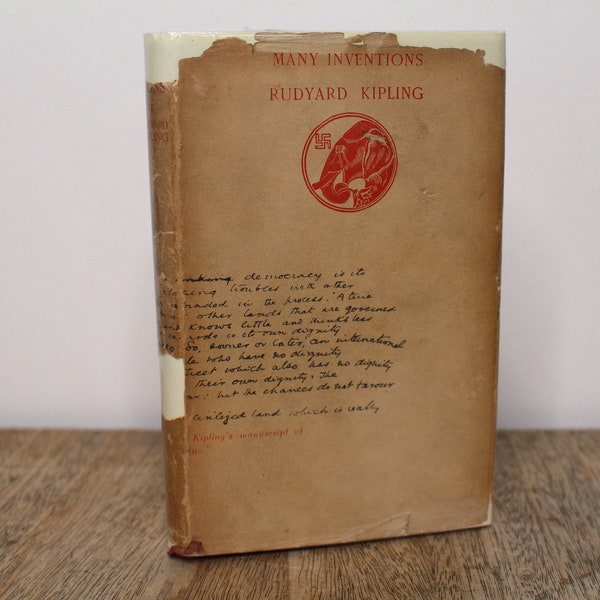 MANY INVENTIONS
RUDYARD KIPLING
democracy is its
troubles with other
in the process. A true
other lands that are governed
knows little and thinks less
its own dignity
So, sooner or later, an international
who have no dignity
which also has no dignity
their own dignity. The
: but the chances do not favour
land which is really
Kipling's manuscript of